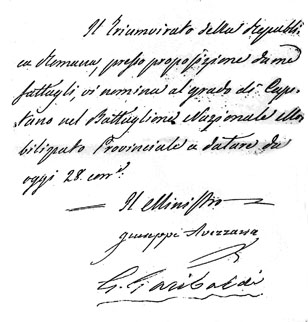 Il Triumvirato della Republi
ca Romana, presso proposizione da me
fattagli, vi nomina al grado di Capi
tano nel Battaglione Nazionale Mo
bilizzato Provinciale a datare da
oggi 28 corr.e
Il Ministro
Giuseppe Avezzana
G. Garibaldi